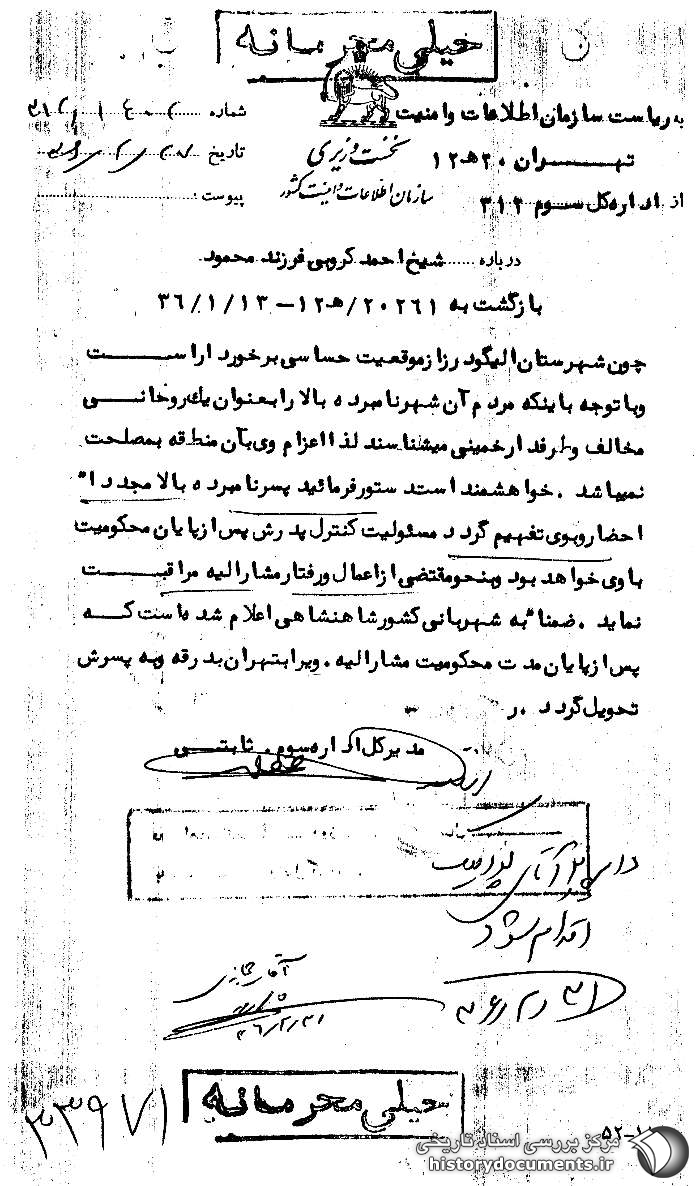 خیلی محرمانه
به ریاست سازمان اطلاعات و امنیت
شماره
تهران ۲۰هـ۱۲
نخست وزیری
تاریخ
از اداره کل سوم ۳۱۲
سازمان اطلاعات و امنیت کشور
پیوست
درباره شیخ احمد کروبی فرزند محمود
بازگشت به ۲۰۲۶۱/هـ۱۲–۳۶/۱/۱۳
چون شهرستان الیگودرز از موقعیت حساسی برخوردار است
و با توجه باینکه مردم آن شهر نامبرده بالا را بعنوان یک روحانی
مخالف و طرفدار خمینی میشناسند لذا اعزام وی بآن منطقه بمصلحت
نمیباشد . خواهشمند است دستور فرمائید پسر نامبرده بالا مجدداً
احضار و بوی تفهیم گردد مسئولیت کنترل پدرش پس از پایان محکومیت
با وی خواهد بود و بنحو مقتضی از اعمال و رفتار مشارالیه مراقبت
نماید . ضمناً به شهربانی کشور شاهنشاهی اعلام شده است که
پس از پایان مدت محکومیت مشارالیه . ویرا بتهران بدرقه و به پسرش
تحویل گردد . ر
مدیر کل اداره سوم . ثابتی
اقدام شود
۳۶/۲/۳۱
۳۳۹۷۱
خیلی محرمانه
مرکز بررسی اسناد تاریخی
historydocuments.ir